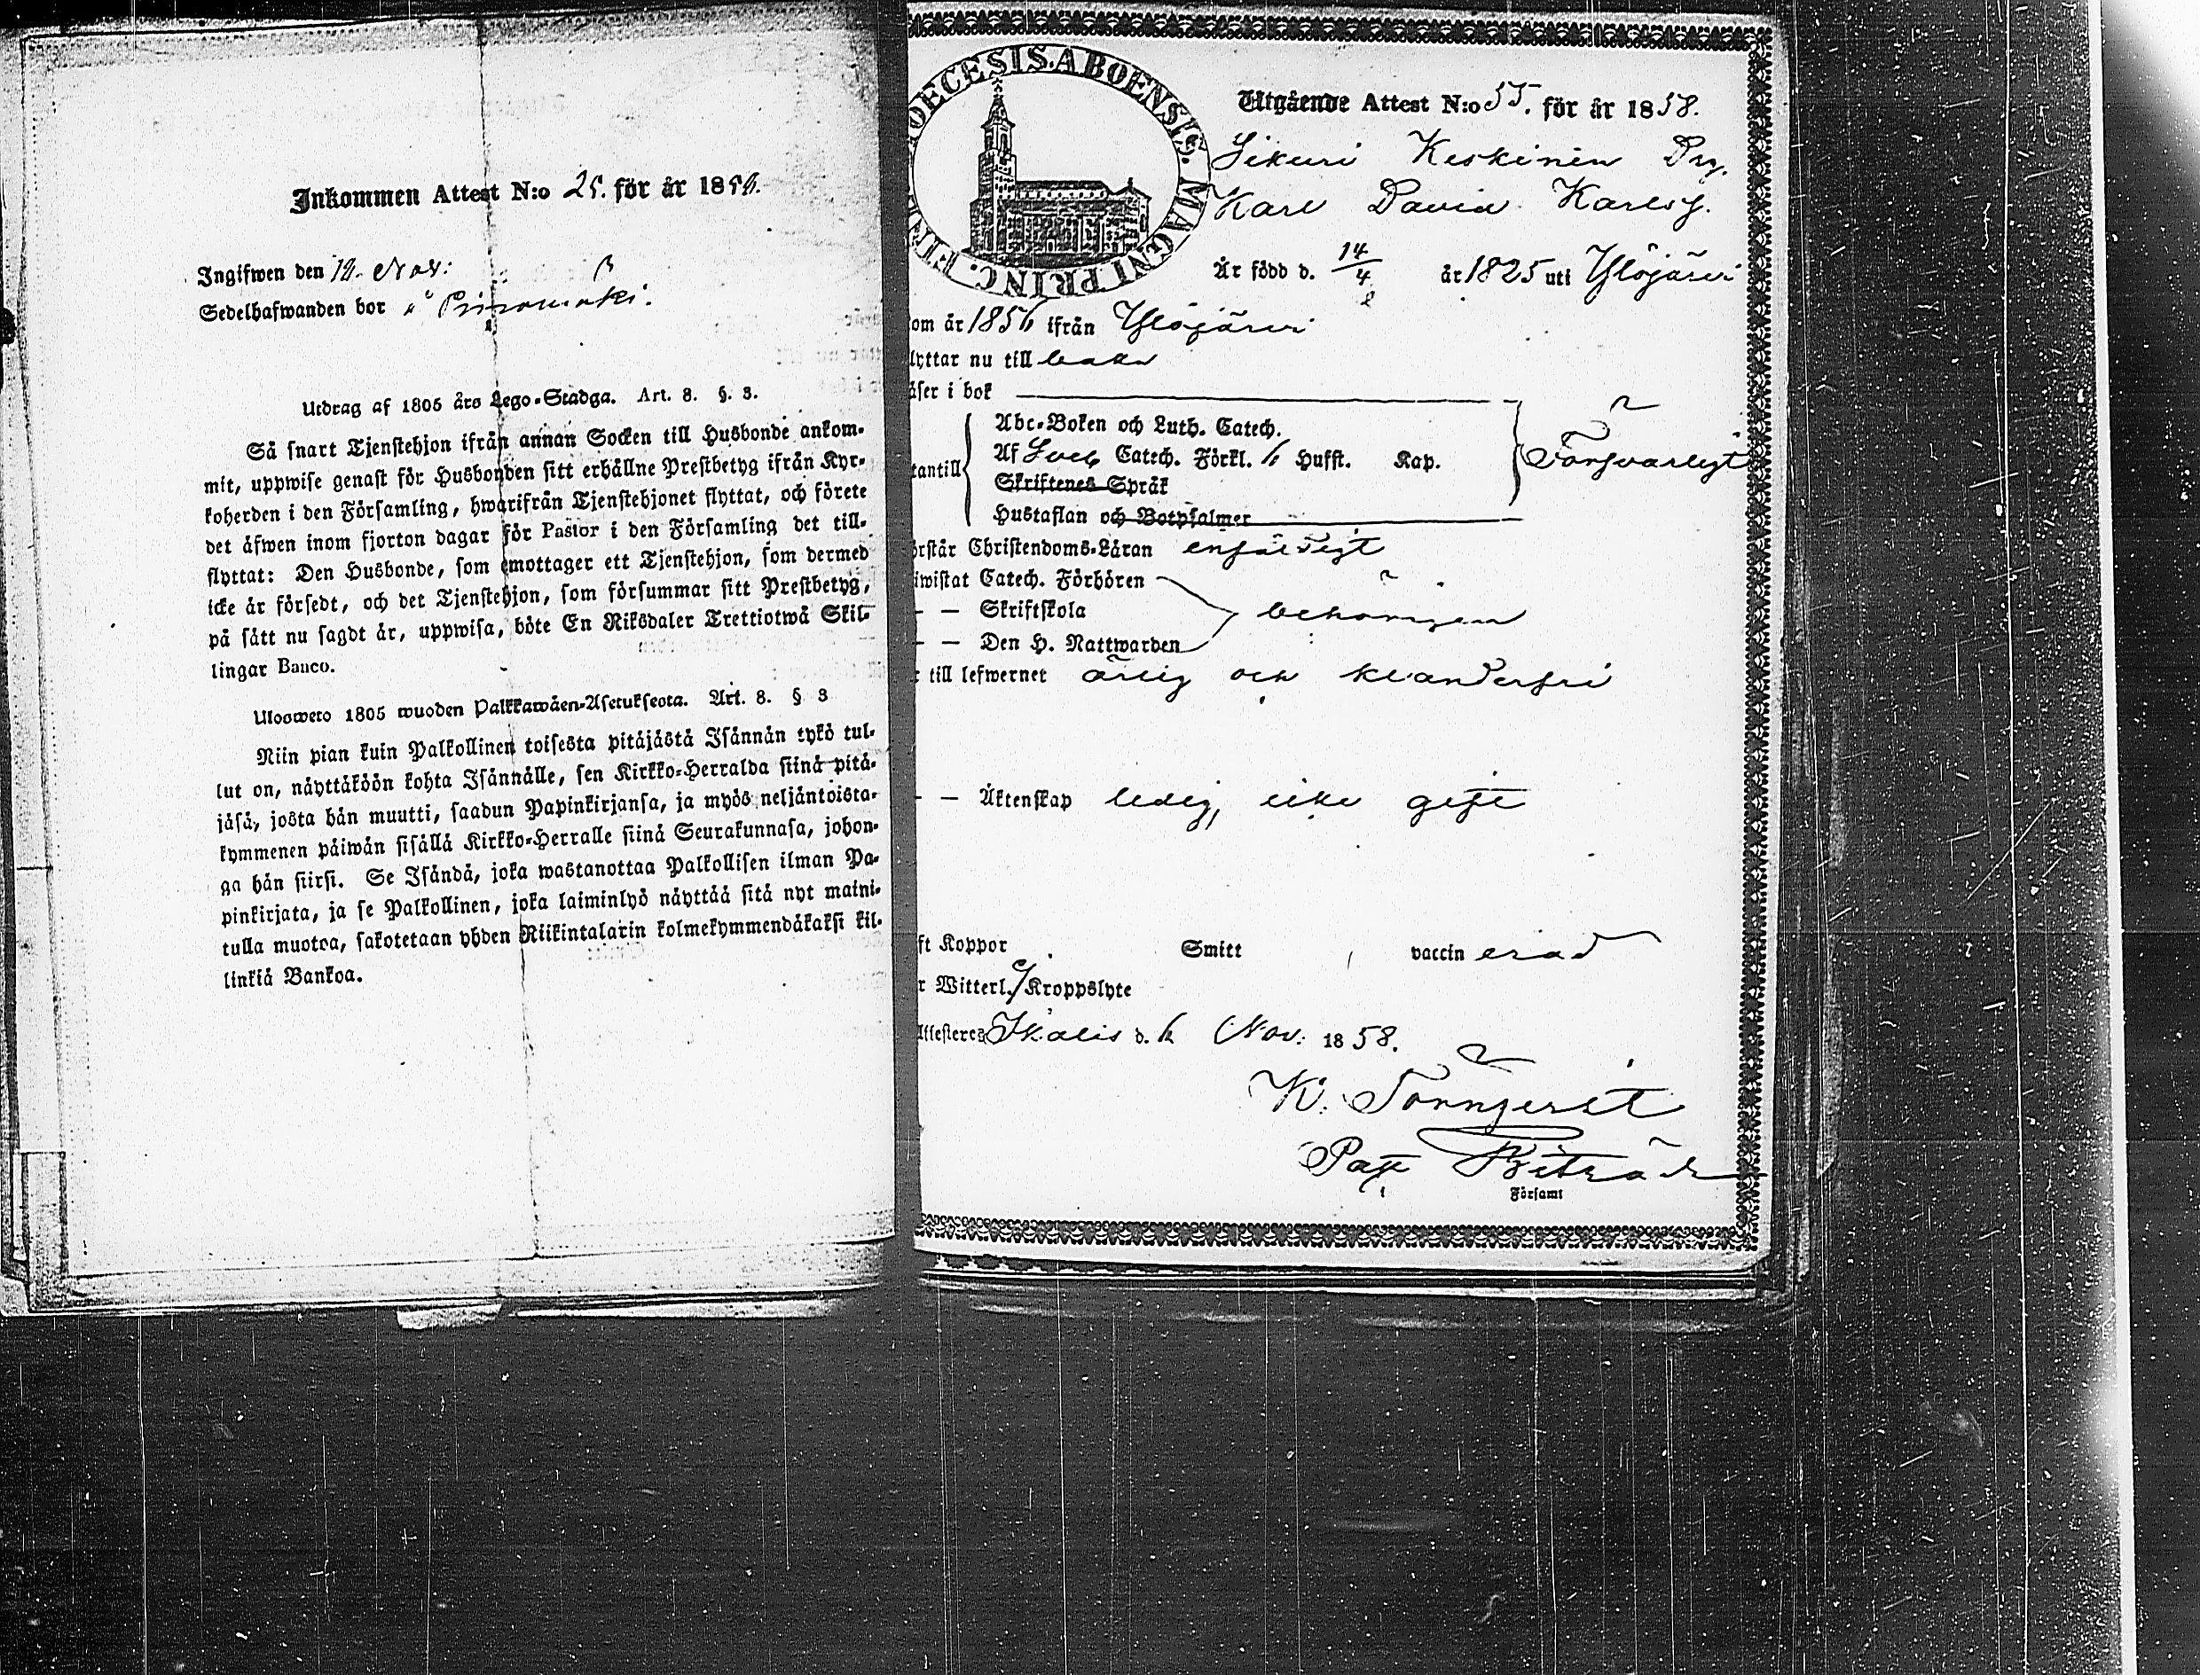 Inkommen Attest N:o 25. för år 1858.
Ingifwen den 12. Nov:
Sedelhafwanden bor
Utdrag af 1805 års Lego-Stadga. Art. 8. §. 3.
Så snart Tjenstehjon ifrån annan Socken till Husbonde ankom-
mit, uppwise genast för Husbonden sitt erhållne Prestbetyg ifrån Kyr-
koherden i den Församling, hwarifrån Tjenstehjonet flyttat, och förete
det äfwen inom fjorton dagar för Pastor i den Församling det till-
flyttat: Den Husbonde, som emottager ett Tjenstehjon, som dermed
icke är försedt, och det Tjenstehjon, som försummar sitt Prestbetyg,
på sätt nu sagdt är, uppwisa, böte En Riksdaler Trettiotwå Skil-
lingar Banco.
Ulosweto 1805 wuoden Palkkawäen-Asetuksesta. Art. 8. § 3
Niin pian kuin Palkollinen toisesta pitäjästä Isännän tykö tul-
lut on, näyttäköön kohta Isännälle, sen Kirkko-Herralda siinä pitä-
jäsä, josta hän muutti, saadun Papinkirjansa, ja myös neljäntoista-
kymmenen päiwän sisällä Kirkko-Herralle siinä Seurakunnasa, johon-
ga hän siirsi. Se Isändä, joka wastanottaa Palkollisen ilman Pa-
pinkirjata, ja se Palkollinen, joka laiminlyö näyttää sitä nyt maini-
tulla muotoa, sakotetaan yhden Riikintalarin kolmekymmendäkaksi kil-
linkiä Bankoa.
OECESIS.ABOENSIS.MAGNI PRINC.FIN
Utgående Attest N:o 55. för år 1858.
Sikuri Keskinen Drg.
Karl David Karlss.
Är född d. 14/4 år 1825 uti Ylöjärvi
om år 1856 ifrån Ylöjärvi
lyttar nu till baka
äser i bok
Abc-Boken och Luth. Catech.
Af Sveb Catech. Förkl. 6 Hufst. Kap.
tantill Försvarligt
Skriftenes Språk
Hustaflan och Botpsalmer
rstår Christendoms-Läran enfäldigt
iwistat Catech. Förhören
— — Skriftskola behörigen
— — Den H. Nattwarden
r till lefwernet ärlig och klanderfri
— — Äktenskap ledig, icke gift
ft Koppor Smitt vaccin erad
r Witterl. Kroppslyte
Attesteras Ikalis d. 6 Nov: 1858.
K. Törnqvist
Past Biträde
Församl